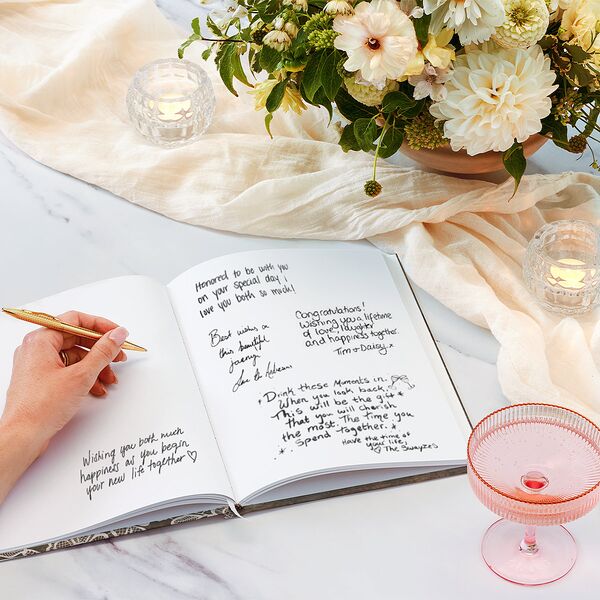 Wishing you both much
happiness as you begin
your new life together ♡
Honored to be with you
on your special day!
love you both so much!
Best wishes on
this beautiful
journey
Congratulations!
Wishing you a lifetime
of love, laughter
and happiness together.
Tim + Daisy x
Drink these moments in.
When you look back,
This will be the gift
that you will cherish
the most. The time you
spend together.
Have the time of
your life,
♡ The Swayzes